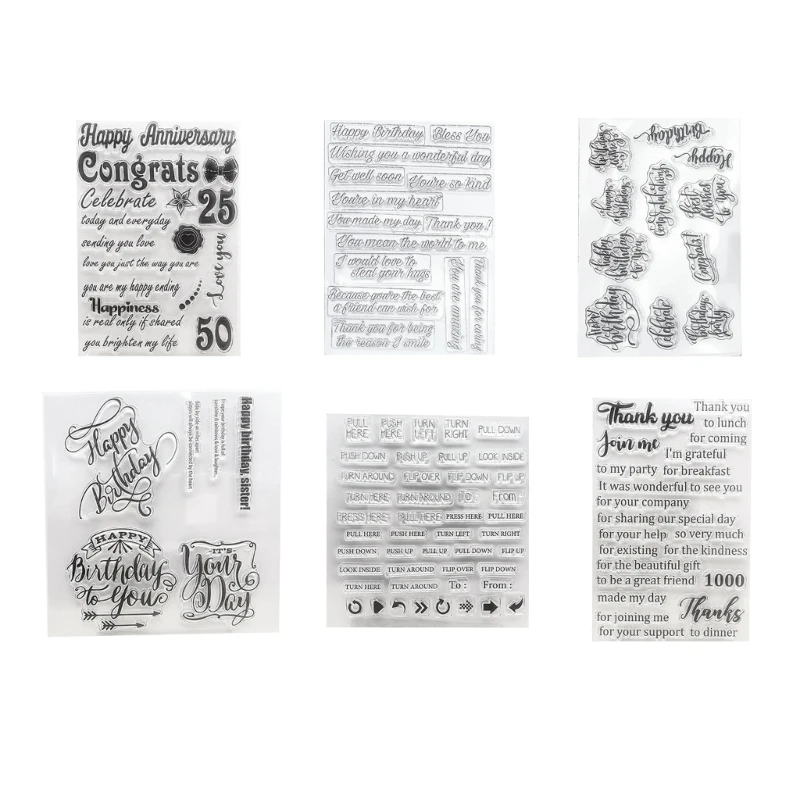 Happy Anniversary
Congrats
Celebrate
25
today and everyday
sending you love
love you just the way you are
Love you
you are my happy ending
Happiness
is real only if shared
50
you brighten my life
Happy Birthday
Bless You
Wishing you a wonderful day
Get well soon
You're so kind
You're in my heart
You made my day
Thank you!
You mean the world to me
I would love to
steal your hugs
You are amazing
Thank you for caring
Because you're the best
a friend can wish for
Thank you for being
the reason I smile
Birthday
Happy
happy birthday
Congratulations
Best wishes to you
happy birthday to you
Congrats!
happy birthday
Celebrate
Birthday party
Happy
Birthday
Happy birthday, sister!
Side by side or miles apart
sisters will always be connected by the heart
HAPPY
Birthday
to You
IT'S
Your
Day
PULL HERE
PUSH HERE
TURN LEFT
TURN RIGHT
PULL DOWN
PUSH DOWN
PUSH UP
PULL UP
LOOK INSIDE
TURN AROUND
FLIP OVER
FLIP DOWN
FLIP UP
TURN HERE
TURN AROUND
To:
From:
PRESS HERE
PULL HERE
PRESS HERE
PULL HERE
PULL HERE
PUSH HERE
TURN LEFT
TURN RIGHT
PUSH DOWN
PUSH UP
PULL UP
PULL DOWN
FLIP UP
LOOK INSIDE
TURN AROUND
FLIP OVER
FLIP DOWN
TURN HERE
TURN AROUND
To :
From :
Thank you
Thank you
to lunch
Join me
for coming
I'm grateful
to my party for breakfast
It was wonderful to see you
for your company
for sharing our special day
for your help so very much
for existing for the kindness
for the beautiful gift
to be a great friend 1000
made my day
Thanks
for joining me
for your support to dinner